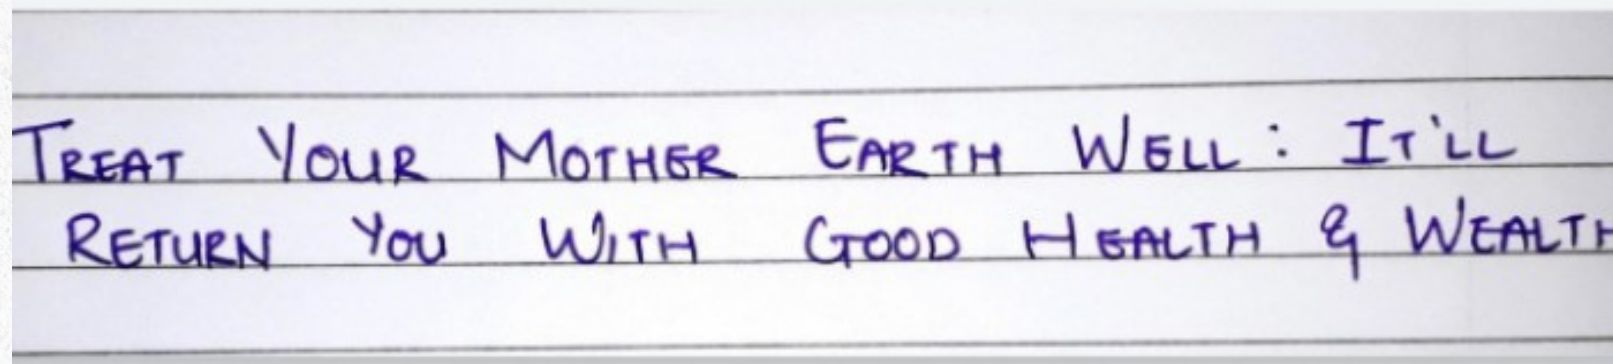 TREAT YOUR MOTHER EARTH WELL : IT'LL
RETURN YOU WITH GOOD HEALTH & WEALTH